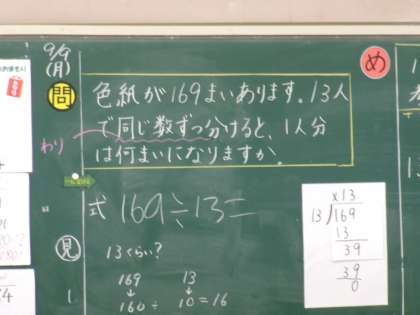 9/9
(月)
問
め
色紙が169まいあります。13人
で同じ数ずつ分けると、1人分
は何まいになりますか。
わり
式 169÷13=
見
13くらい?
169 13
↓ ↓
160 ÷ 10 = 16
×13
13)169
13
39
39
0